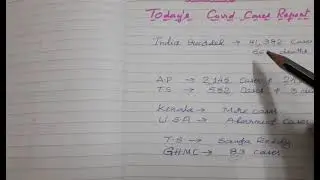 Today's Covid Cases Report
India Recorded → 41,392 cases
deaths
A.P → 2,142 cases &
T.S → 582 Cases & 3
Kerala → More cases
U.S.A → Alarment Cases
T.S → Sanga Reddy
GHMC → 83 cases